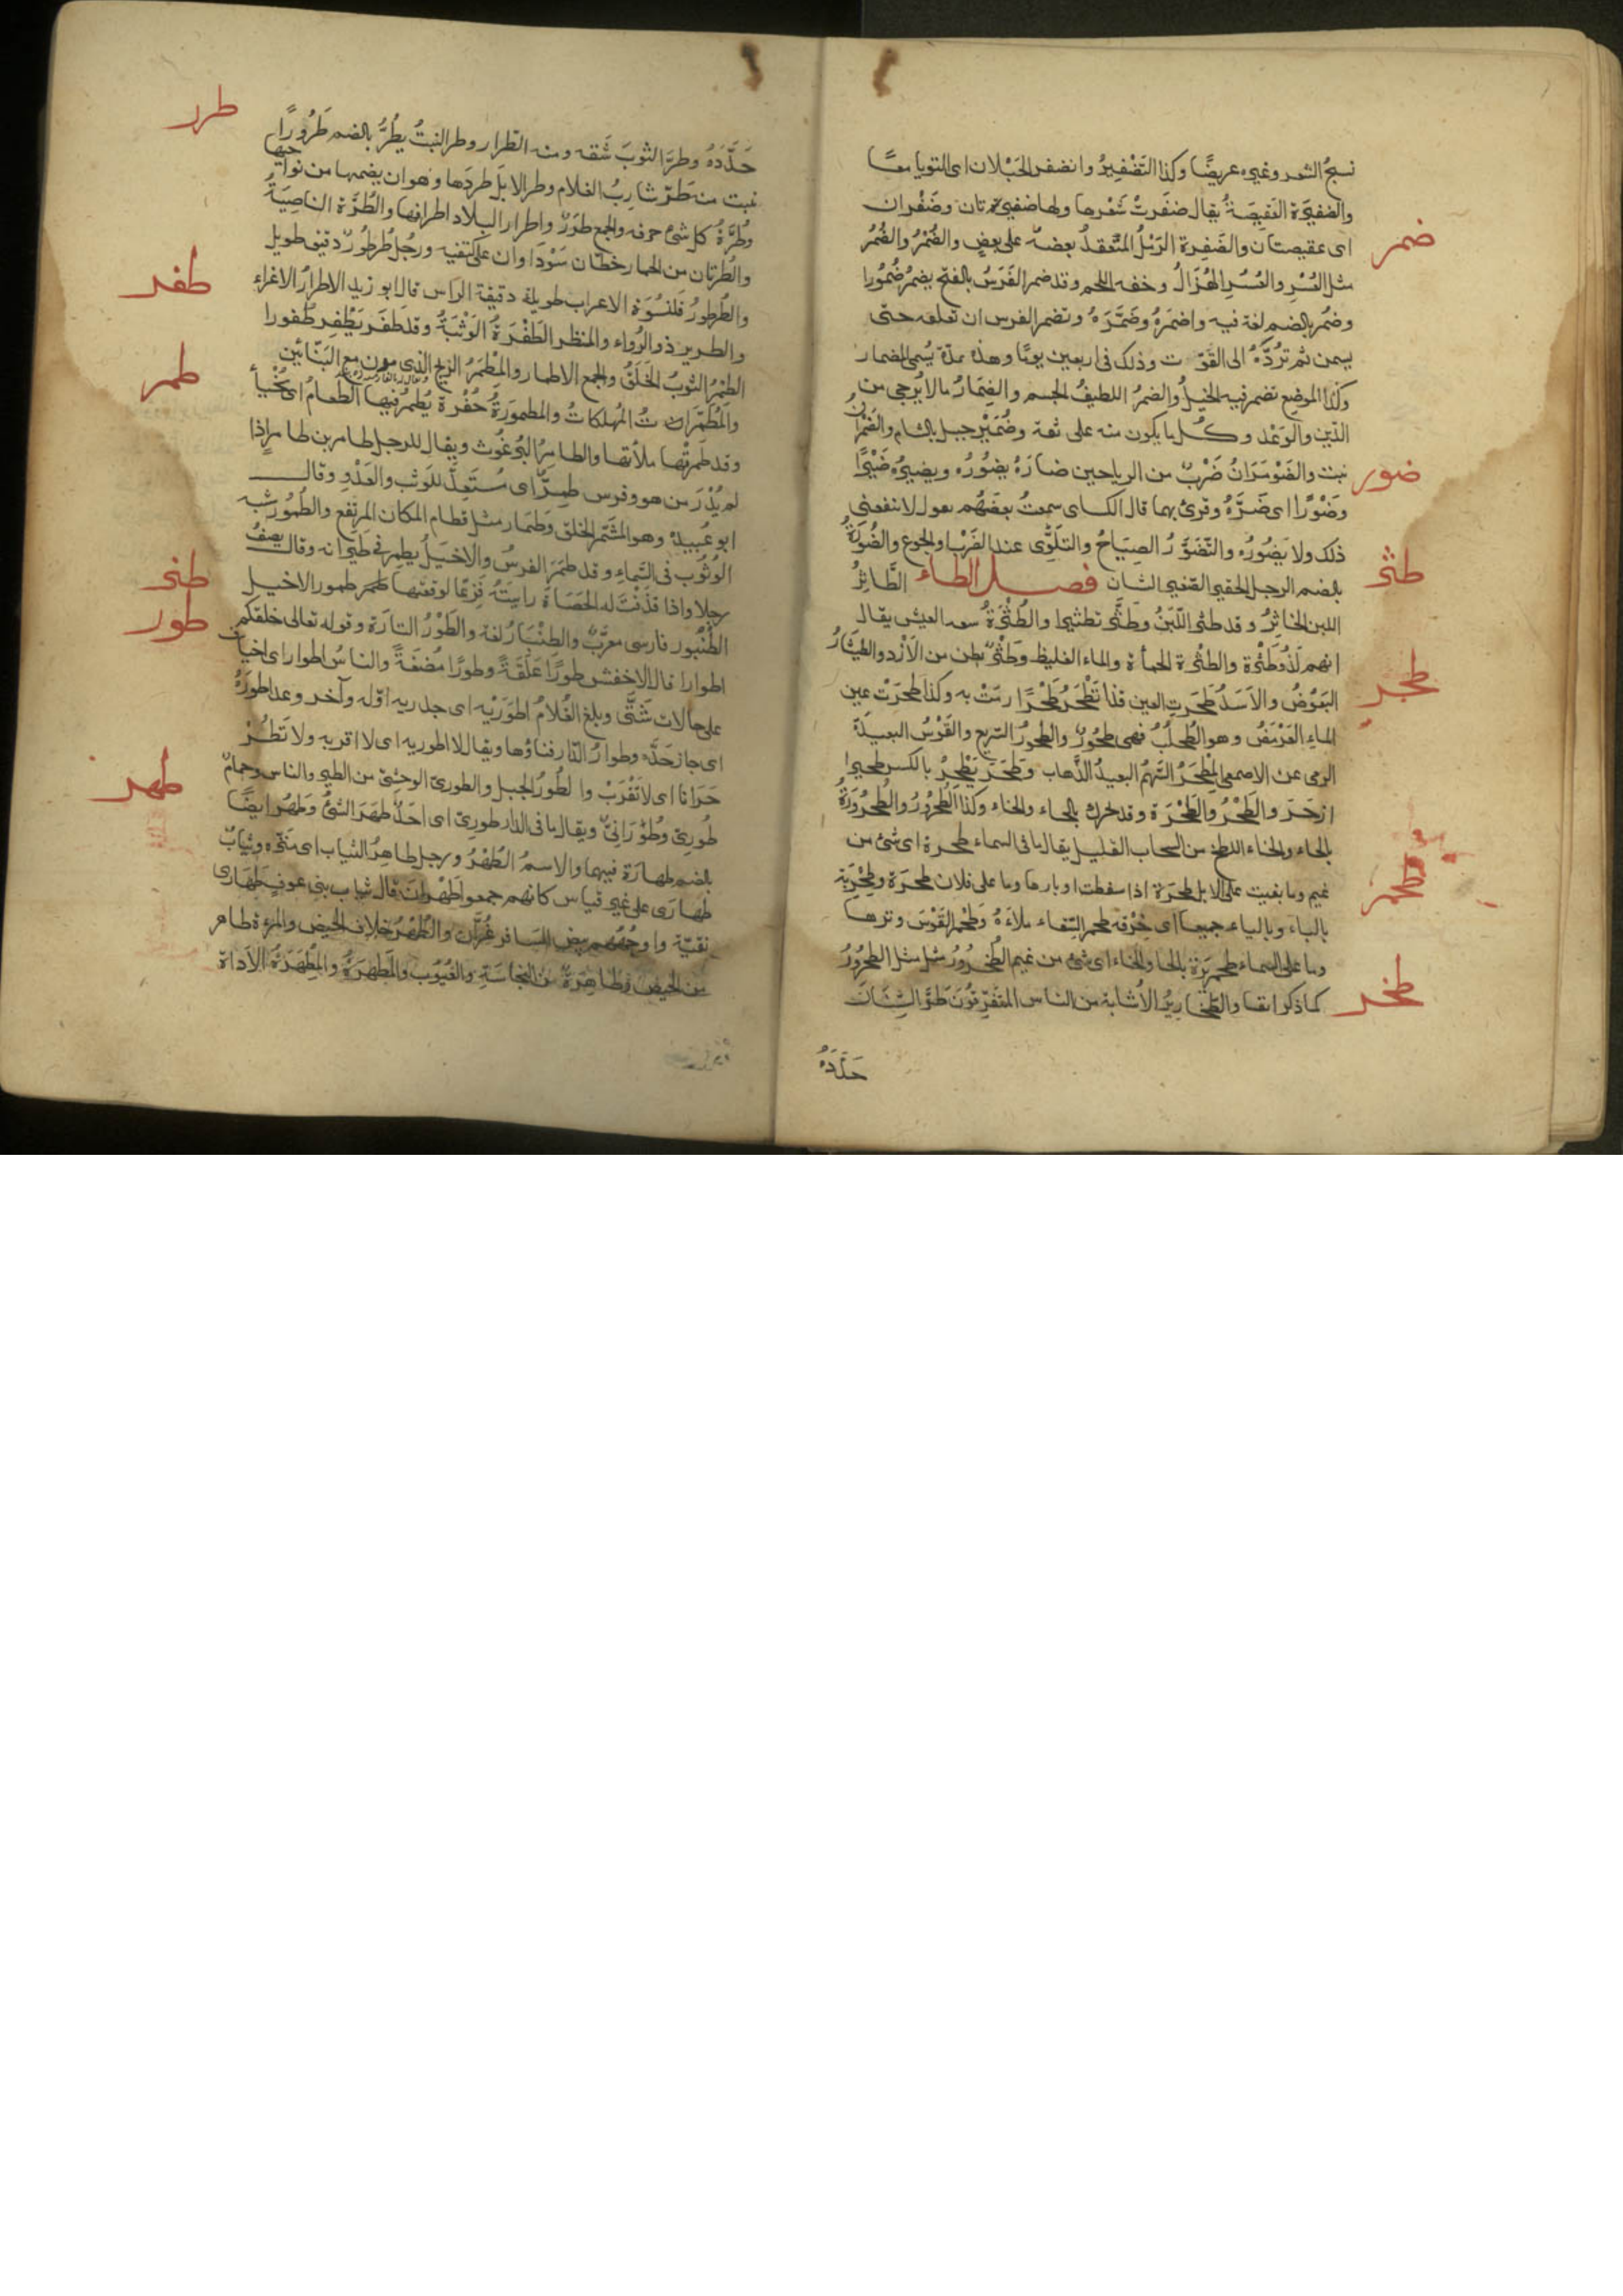 نسجُ الشعر وغيره عريضًا وكذا التَضْفِيرُ وانضفر الحَبْلان اى التويا معًا
والضفيرة العَقِيصَةُ يقال ضفَرتْ شَعْرها ولها ضفيرتان وضَفْران
ضمر
اى عقيصتان والضَفِرة الرَمْلُ المتَعقدُ بعضه على بعض والضُمْرُ والضُمُرُ
مثل العُسْرِ والعُسُرِ الهُزَالُ وخفه اللحم وقد ضمر الفَرَسُ بالفتح يضمُرُ ضُمُورا
وضمُر بالضم لغة فيه واضمَرَهُ وضَمَّرَهُ وتضمر الفرس ان تعلفه حتى
يسمن ثم تَرُدَّهُ الى القوت وذلك فى اربعين يومًا وهذه مدّة يُسمى المضمار
وكذا الموضع تضمر فيه الخيلُ والضمرُ اللطيفُ الجسم والضِمَارُ مالا يُرجى من
الدّين والوَعْد وكل ما يكون منه على ثقة وضُمَيْر جبل بالشام والضَمْرانُ
ضور
نبت والضَوْمَرَانُ ضَرْبٌ من الرياحين ضارَهُ يضُورُه ويضيرُه ضَيْرًا
وضَوْرًا اى ضَرَّهُ وقرئ بهما قال الكساى سمعتُ بعضَهُم يقول لا ينفعنى
ذلك ولا يَضُورُه والتضَوُّرُ الصِيَاحُ والتلَوِّى عند الضَرْب والجوع والضُورَةُ
طثر
بالضم الرجل الحقير الصغير الشان فصل الطاء الطَّاثِرُ
اللبن الخاثِرُ وقد طثر اللّبَنُ وطَثَّر تطثيرا والطُثْرَةُ سعه العيش يقال
انهم لَذُو طَثْرة والطثْرة الحمأة والماء الغليظ وطَثْرٌ بطن من الأَزْد والطَيْثَارُ
طحر
البَعُوْضُ والاَسَدُ طَحَرتِ العين قذا تَطْحَرُ طَحْرًا رمَتْ به وكذا طحَرَتْ عين
الماءِ العَرْمَضَ وهو الطُحلُبُ فهى طَحُورٌ والطحورُ السَريع والقَوْسُ البعيدَةُ
الرمى عن الاصمعى المِطْحَرُ السَّهْمُ البعيدُ الذَّهاب وطحَرَ يَطْحِرُ بالكسر طحيرا
ازحَرَ والطَحْرُ والطَحْرَة وقد تحرك بالحاء والخاء وكذا الطُحرُورُ والطُحرُورَةُ
بالحاء والخاء اللطخ من السحاب القليل يقال ما فى السماء طحرة اى شئ من
غيم وما بقيت على الابل طحرَة اذا سقطت اوبارها وما على فلان طحرَة وطِحْرِية
طحمر
بالباء وبالياء جميعا اى خِرْقه طحمر السِقاء ملاَءَهُ وطَحْمر القَوْسَ وترها
وما على السماء طحمرِيَرة بالحا والخاء اى شئ من غيم الطُخْرُورُ مثل الطحرُورُ
طخر
كما ذكرانفا والطَخَارِيرُ الأُشابة من الناس المتفَرِّقُونَ طرَّ السِنَانَ
حَدَّدَهُ
طرر
حَدَّدَهُ وطرَّ الثوبَ شَقه ومنه الطرار وطر النبتُ يطُرُّ بالضم طُرُورًا
نبت منه طَرّ شارِبُ الغلام وطر الابلَ طردَها وهو ان يضمها من نواحيها
وطُرَّةُ كل شئ حرفه والجمع طرَرٌ واطرار البلاد اطرافها والطُرَّة الناصِيَةُ
والطُرتان من الحمار خطّان سَوْدَاوان على كتفيه ورجُل طُرطُورٌ دقيق طويل
طفر
والطُرطورُ قلنسُوَة الاعراب طويلة دقيقة الراس قال ابو زيد الاطرارُ الاغراء
والطرير ذو الرُواء والمنظر الطَفْرَةُ الوَثْبَةُ وقد طَفَر يَطْفِر طفورا
طمر
الطِمْرُ الثوبُ الخَلَقُ والجمع الاطمار والمِطْمَرُ الزيج الذى يكون مع البَنّائين
والمُطَمِّرات المُهلكاتُ والمطمورَةُ حُفْرَة يُطمَرُ فيها الطعامُ اى يُخْبَأُ
وقد طمَرتُها ملأتها والطامِرُ البُرغُوث ويقال للرجل طامر بن طامرٍ اذا
لم يُدْرَ من هو وفرس طِمِرٌّ اى مُستَعِدٌّ للوَثب والعَدْوِ وقال
ابو عُبيدة وهو المشَمّر الخلق وطَمَار مثل قطام المكان المرتفع والطُمُور شبه
الوُثُوب فى السَّماء وقد طَمَرَ الفرسُ والاخيَلُ يطمِر فى طَيَرانه وقال يصفُ
طنر
رجلا واذا قذَفْتَ له الحَصَاةَ رايتَهُ فَزِعًا لوقعتها طمور الاخيل
طور
الطُنْبُور فارسى معرَّبٌ والطِنْبَارُ لغة والطَوْرُ التارَة وقوله تعالى خلقكم
اطوارا قال الاخفش طَورًا عَلَقَةً وطورًا مُضغَةً والناسُ اطوار اى اخياف
على حالات شَتَّى وبلغ الغُلامُ اطوَرَيْه اى حدريه اوّله وآخر وعدا طورَهُ
اى جازَ حَدَّه وطوارُ الدّار فناؤها ويقال لا اطور به اى لا اقربه ولا تَطُرْ
طهر
حَرَانا اى لا تَقْرَبْ والطُورُ الجبل والطورىّ الوحشىّ من الطير والناس وحمامٌ
طُورِىّ وطُوْرَانِىٌّ ويقال ما فى الدار طورِىّ اى احَدٌ طهَرَ الشئُ وطهُر ايضًا
بالضم طهارَة فيهما والاسمُ الطُهْرُ ورجل طاهِرُ الثياب اى منَزّه وثيابٌ
طَهارَى على غير قياس كانهم جمعوا طَهْران قال ثياب بنى عوفٍ طهَارى
نقيّة واوجُهُهم بيض المسافر غُرَّان والطُهْرُ خلاف الحيض والمرءة طاهر
من الحيض وطاهِرَةٌ من النجاسَةِ والعُيُوب والمَطهَرَةُ والمِطهَرَةُ الأداة